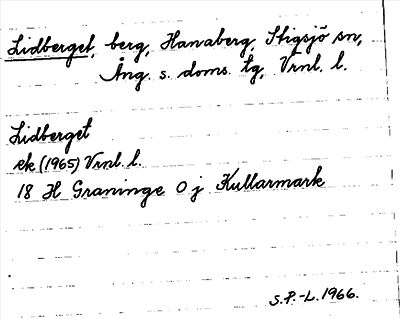 Lidberget, berg, Hanaberg, Stigsjö sn,
Ång. s. doms. tg, Vrnl. l.
Lidberget
ek (1965) Vrnl. l.
18 H Graninge O j Kullarmark
S.P.-L. 1966.